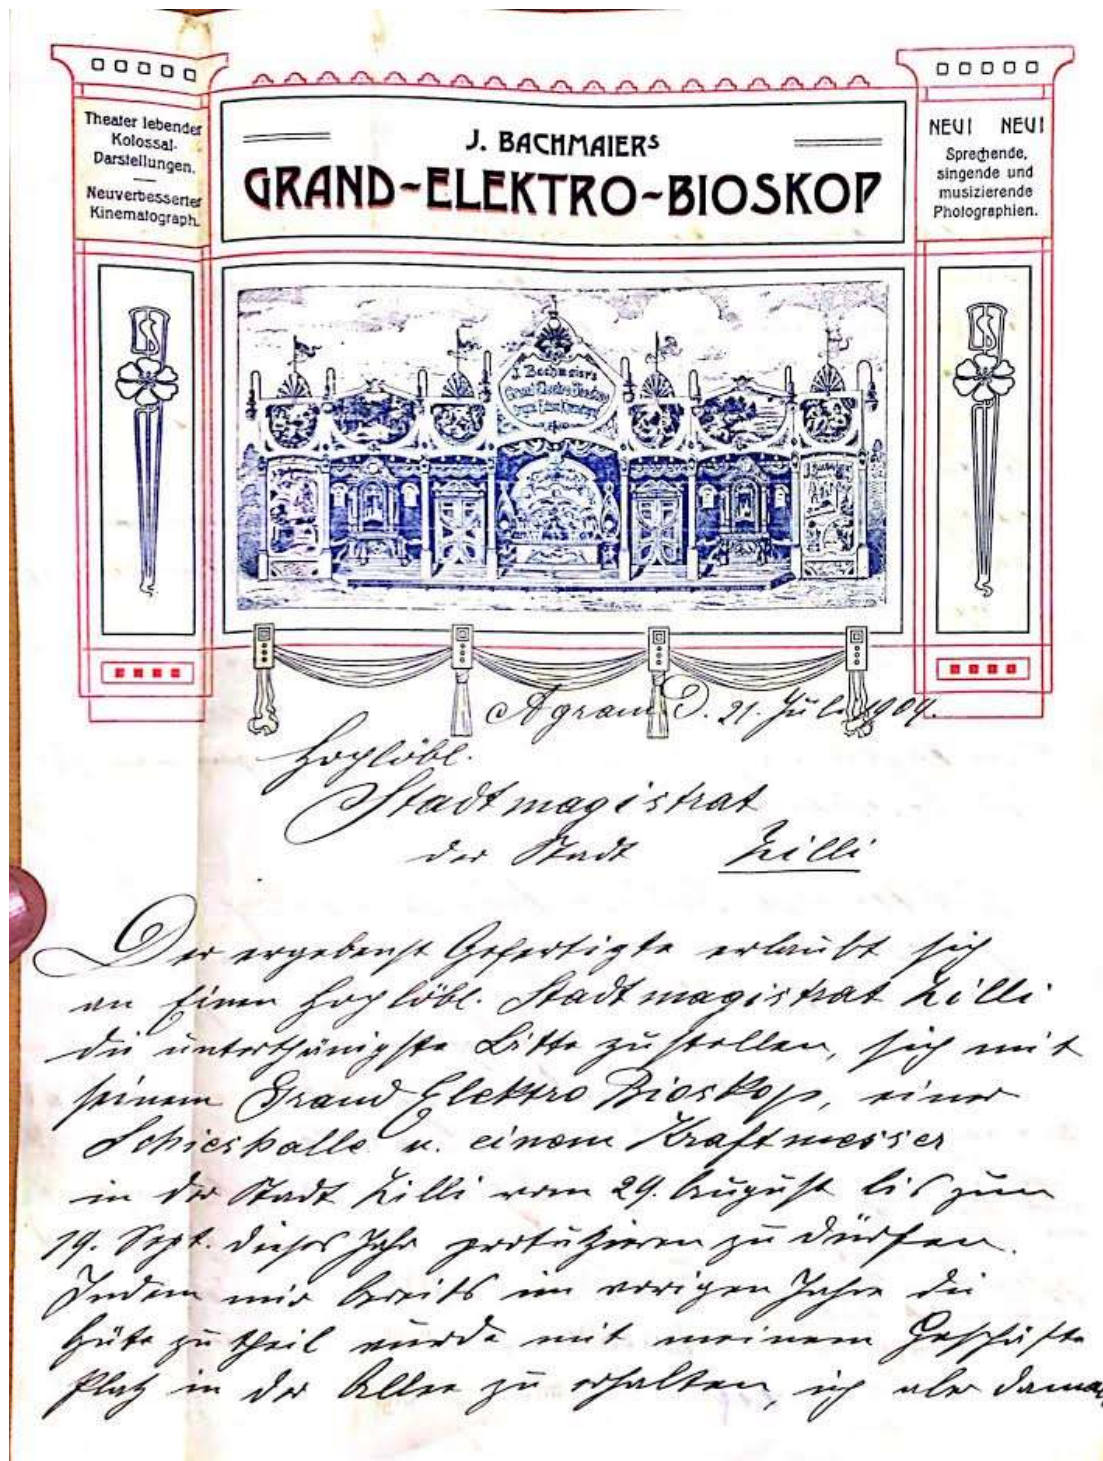 Theater lebender
Kolossal-
Darstellungen.
Neuverbesserter
Kinematograph.
J. BACHMAIERS
GRAND-ELEKTRO-BIOSKOP
NEU! NEU!
Sprechende,
singende und
musizierende
Photographien.
J. Bachmaier's
Agram d. 21. Juli 1909.
Hochlöbl.
Stadtmagistrat
der Stadt Zilli
Der ergebenst Gefertigte erlaubt sich
an Einen hochlöbl. Stadtmagistrat Zilli
die unterthänigste Bitte zu stellen, sich mit
seinem Grand Elektro Bioskop, einer
Schieshalle u. einem Kraftmesser
in der Stadt Zilli vom 29. August bis zum
19. Sept. dieses Jahr produzieren zu dürfen.
Indem mir bereits im vorigen Jahre die
Güte zu theil wurde mit meinem Geschäfte
Platz in der Allee zu erhalten, ich aber